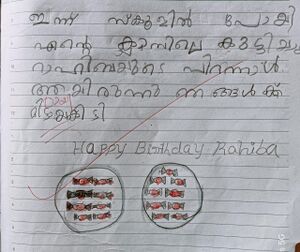 ഇന്ന് സ്കൂളിൽ പോകി
എന്റെ ക്ലാസിലെ കുട്ടിയു
റാഹിബയുടെ പിറന്നാൾ
ആയിരുന്നു ഞങ്ങൾക്ക്
മിഠായി കിട്ടി
Happy Birthday Rahiba